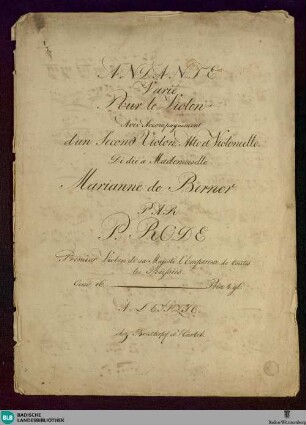 ANDANTE
Varié
Pour le Violon
Avec Accompagnement
d'un Second Violon, Alto et Violoncelle
Dédié à Mademoiselle
Marianne de Berner
PAR
P. RODE
Premier Violon de sa Majesté l'Empereur de toutes
les Russies
Oeuv. 16. Prix 8 gr.
A LEIPZIG
chez Breitkopf et Härtel
BLB BADISCHE
LANDESBIBLIOTHEK
Baden-Württemberg